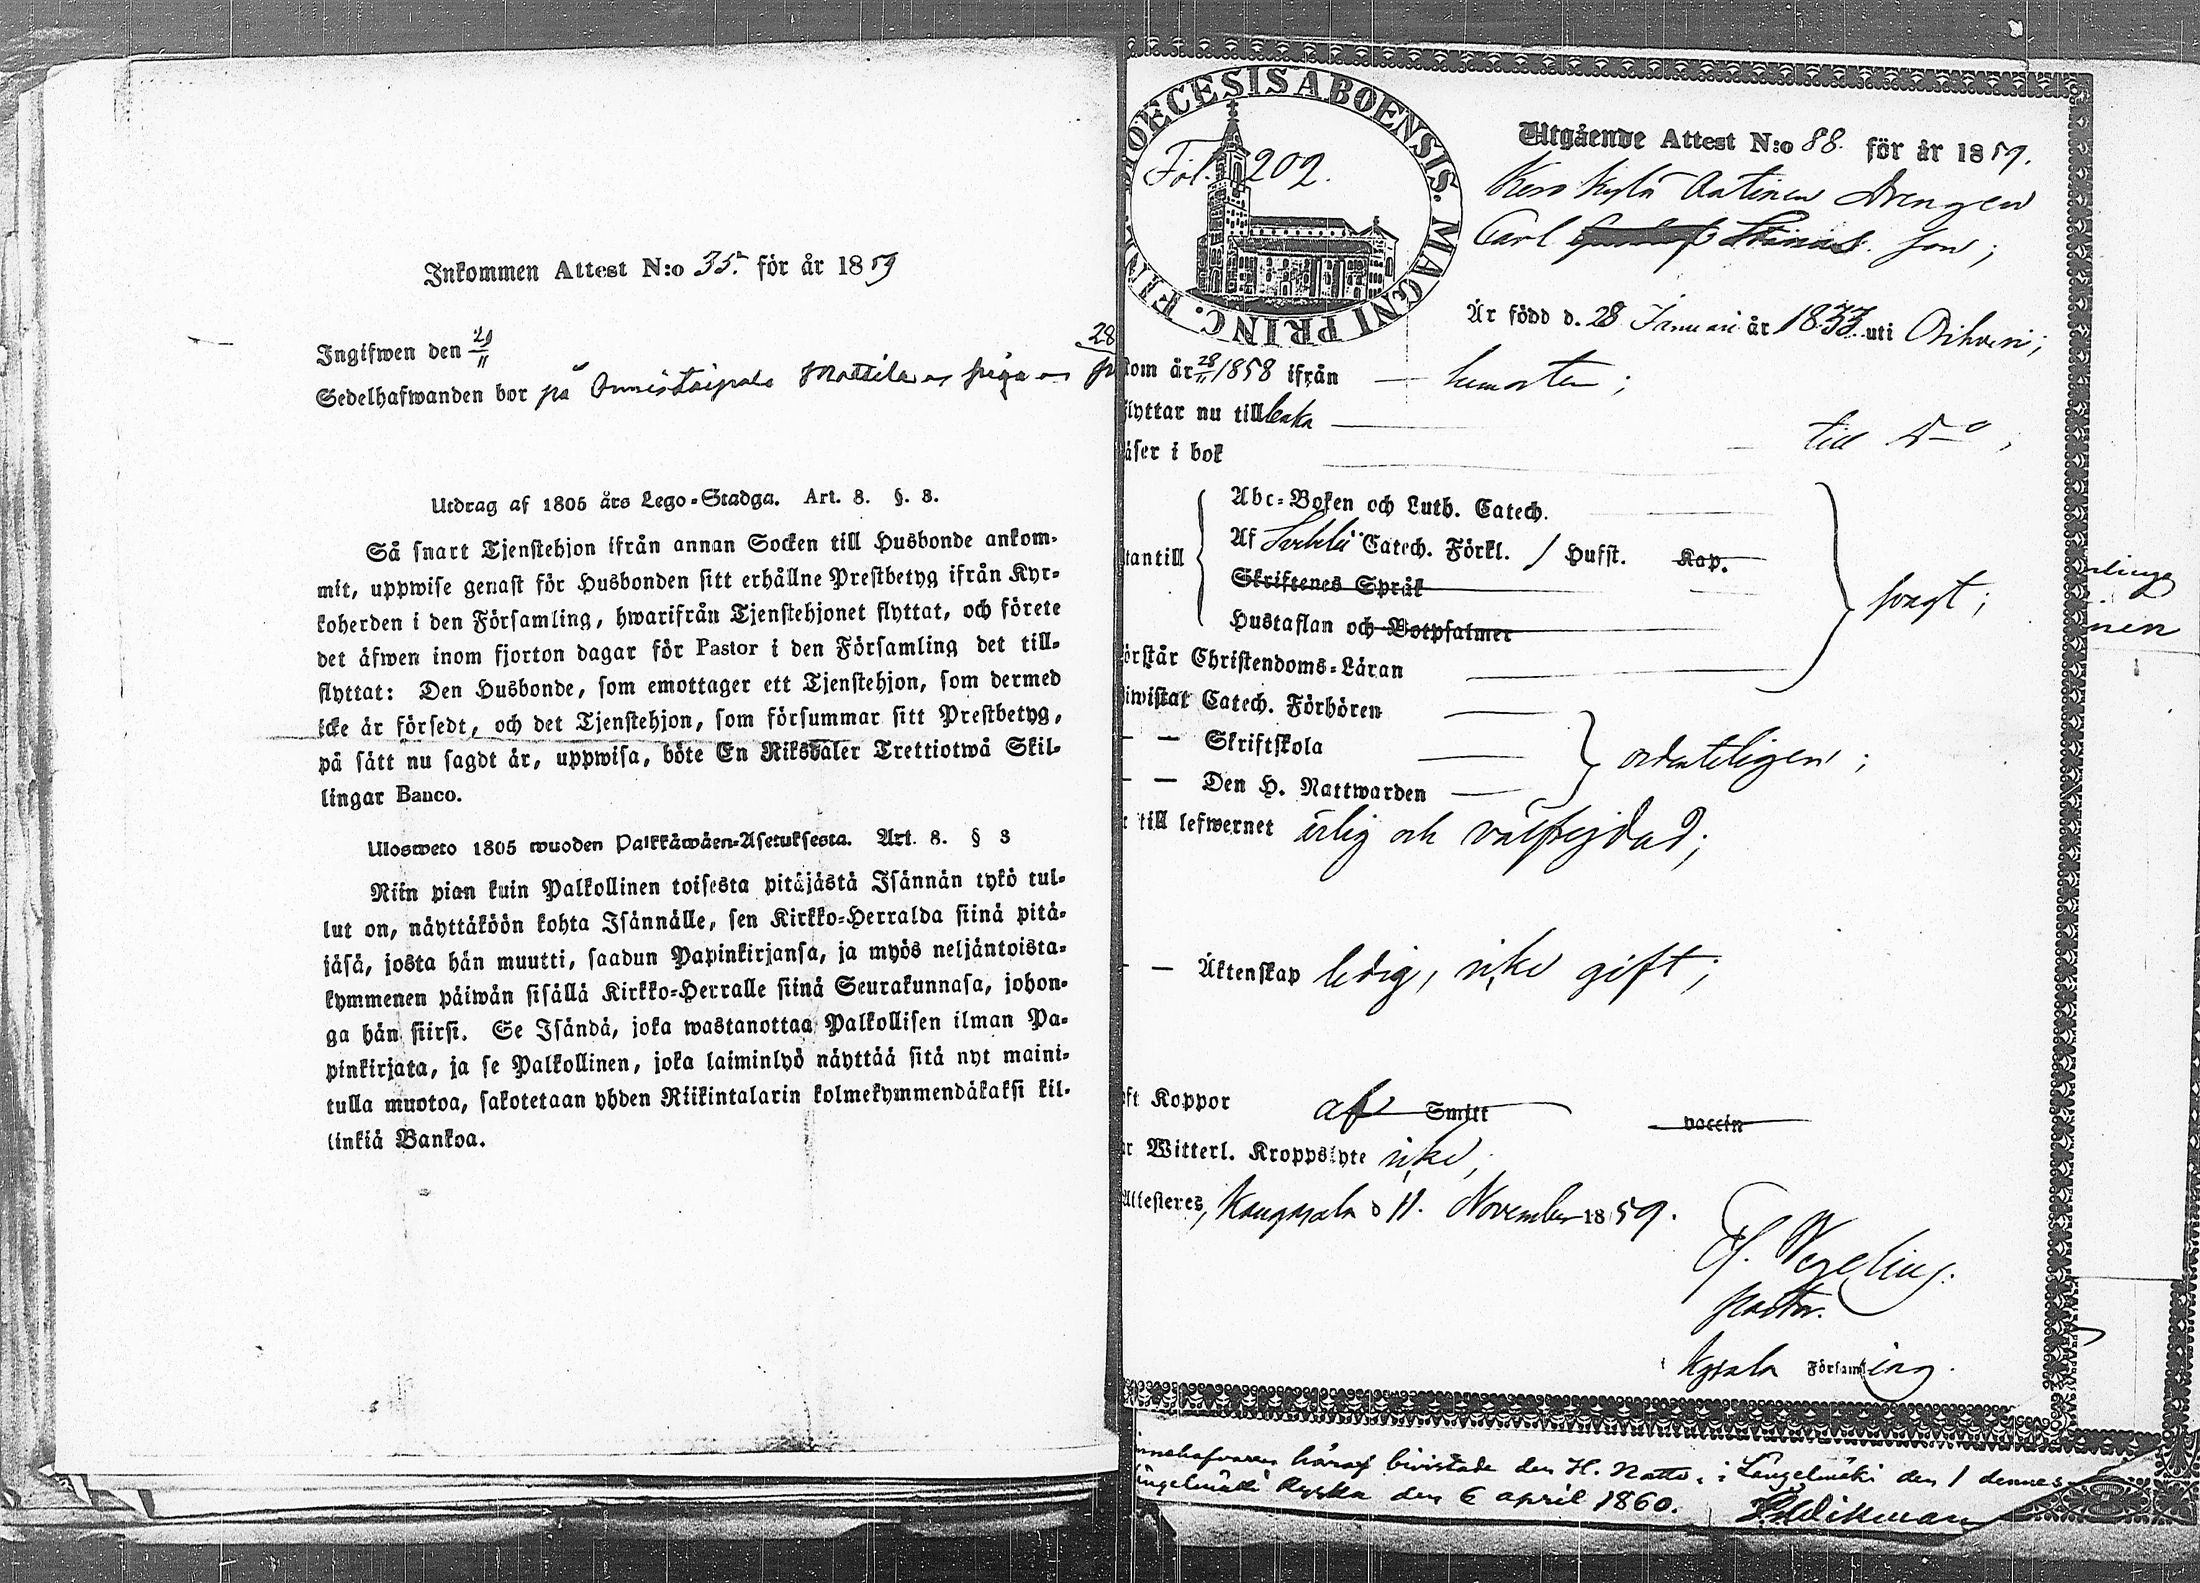 Inkommen Attest N:o 35. för år 1859
Ingifwen den 29/11
Sedelhafwanden bor på Onnistaipale Mattila piga
28
Utdrag af 1805 års Lego-Stadga. Art. 8. §. 3.
Så snart Tjenstehjon ifrån annan Socken till Husbonde ankom-
mit, uppwise genast för Husbonden sitt erhållne Prestbetyg ifrån Kyr-
koherden i den Församling, hwarifrån Tjenstehjonet flyttat, och förete
det äfwen inom fjorton dagar för Pastor i den Församling det till-
flyttat: Den Husbonde, som emottager ett Tjenstehjon, som dermed
icke är försedt, och det Tjenstehjon, som försummar sitt Prestbetyg,
på sätt nu sagdt är, uppwisa, böte En Riksdaler Trettiotwå Skil-
lingar Banco.
Ulosweto 1805 wuoden Palkkäwäen-Asetuksesta. Art. 8. § 3
Niin pian kuin Palkollinen toisesta pitäjästä Isännän tykö tul-
lut on, näyttäköön kohta Isännälle, sen Kirkko-Herralda siinä pitä-
jäsä, josta hän muutti, saadun Papinkirjansa, ja myös neljäntoista-
kymmenen päiwän sisällä Kirkko-Herralle siinä Seurakunnasa, johon-
ga hän siirsi. Se Isändä, joka wastanottaa Palkollisen ilman Pa-
pinkirjata, ja se Palkollinen, joka laiminlyö näyttää sitä nyt maini-
tulla muotoa, sakotetaan yhden Riikintalarin kolmekymmendäkaksi kil-
linkiä Bankoa.
OECESIS ABOENSIS. MAGNI PRINC. FIN
Fol. 202.
Utgående Attest N:o 88. för år 1859.
Drengen
Carl son;
Är född d. 28 Januari år 1833 uti Orihvesi;
kom år 28/11 1858 ifrån hemorten;
flyttar nu tillbaka till Do,
läser i bok
utantill
Abc-Boken och Luth. Catech.
Af Catech. Förkl. / Hufst. Kap.
Skriftenes Språk
Hustaflan och Botpsalmer
svagt;
förstår Christendoms-Läran
biwistat Catech. Förhören
— — Skriftskola
— — Den H. Nattwarden
ordenteligen;
till lefwernet ärlig och välfrejdad;
— — Äktenskap ledig, icke gift;
haft Koppor af Smitt vaccin
har Witterl. Kroppslyte icke;
Attesteres, Kangasala d 11. November 1859.
Wegelius.
pastor.
Kgsala Församling.
innehafvaren häraf bivistade den H. Nattv. i Längelmäki den 1 dennes
Längelmäki Kyrka den 6 april 1860.
Wikman